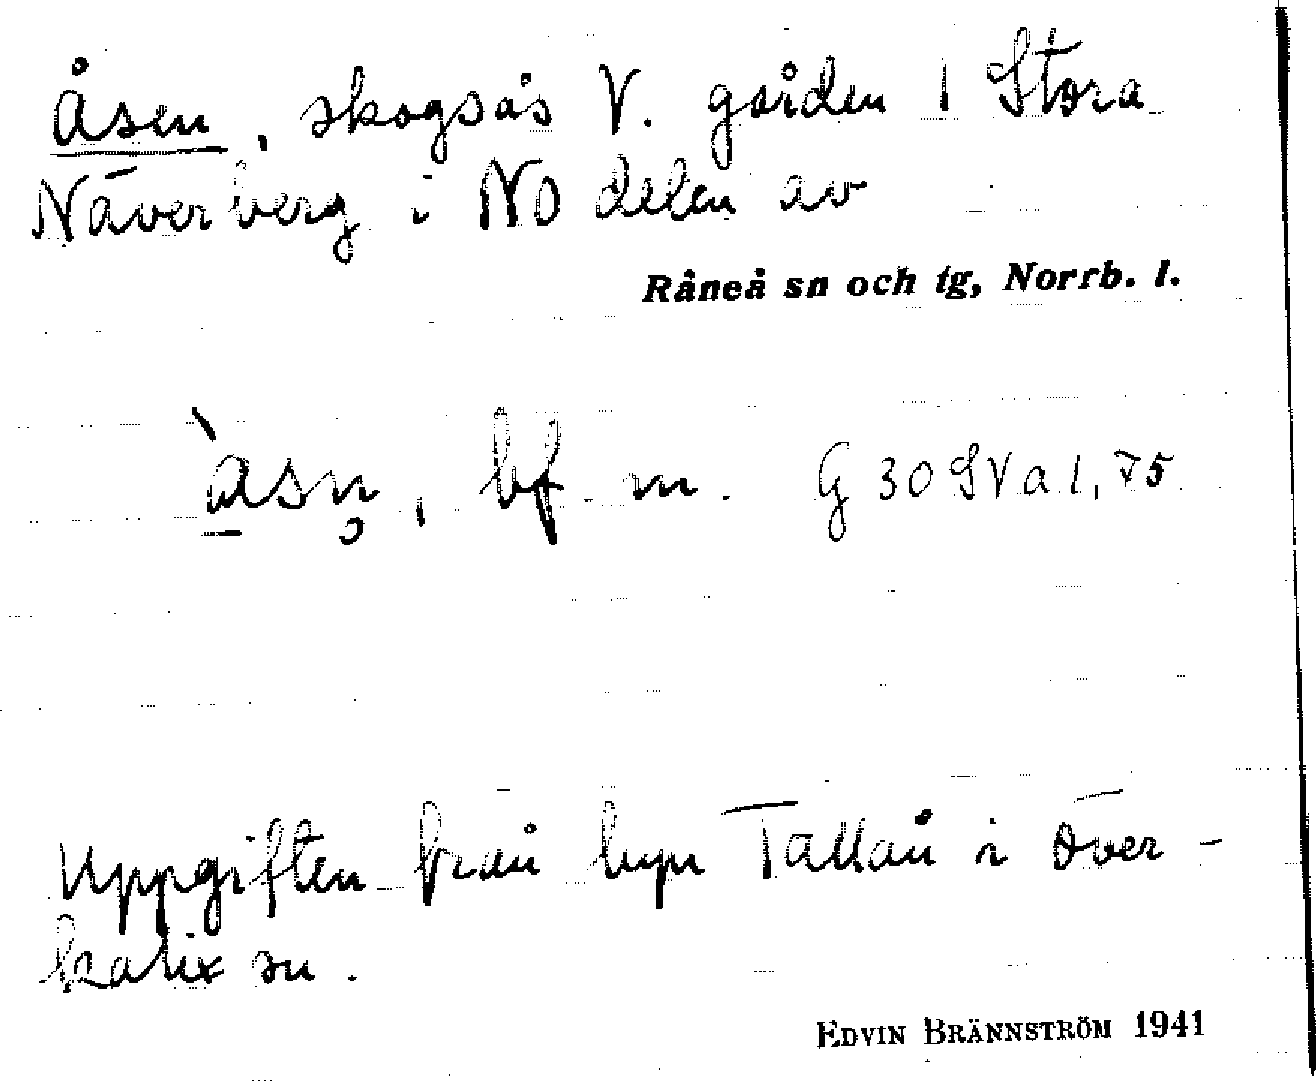 Åsen, skogsås V. gården 1 Stora
Näverberg i NO delen av
Råneå sn och tg, Norrb. l.
`a̲sn̥, bf. m. G 30 SV a 1, 75
Uppgiften från byn Tallån i Över-
kalix sn.
EDVIN BRÄNNSTRÖM 1941